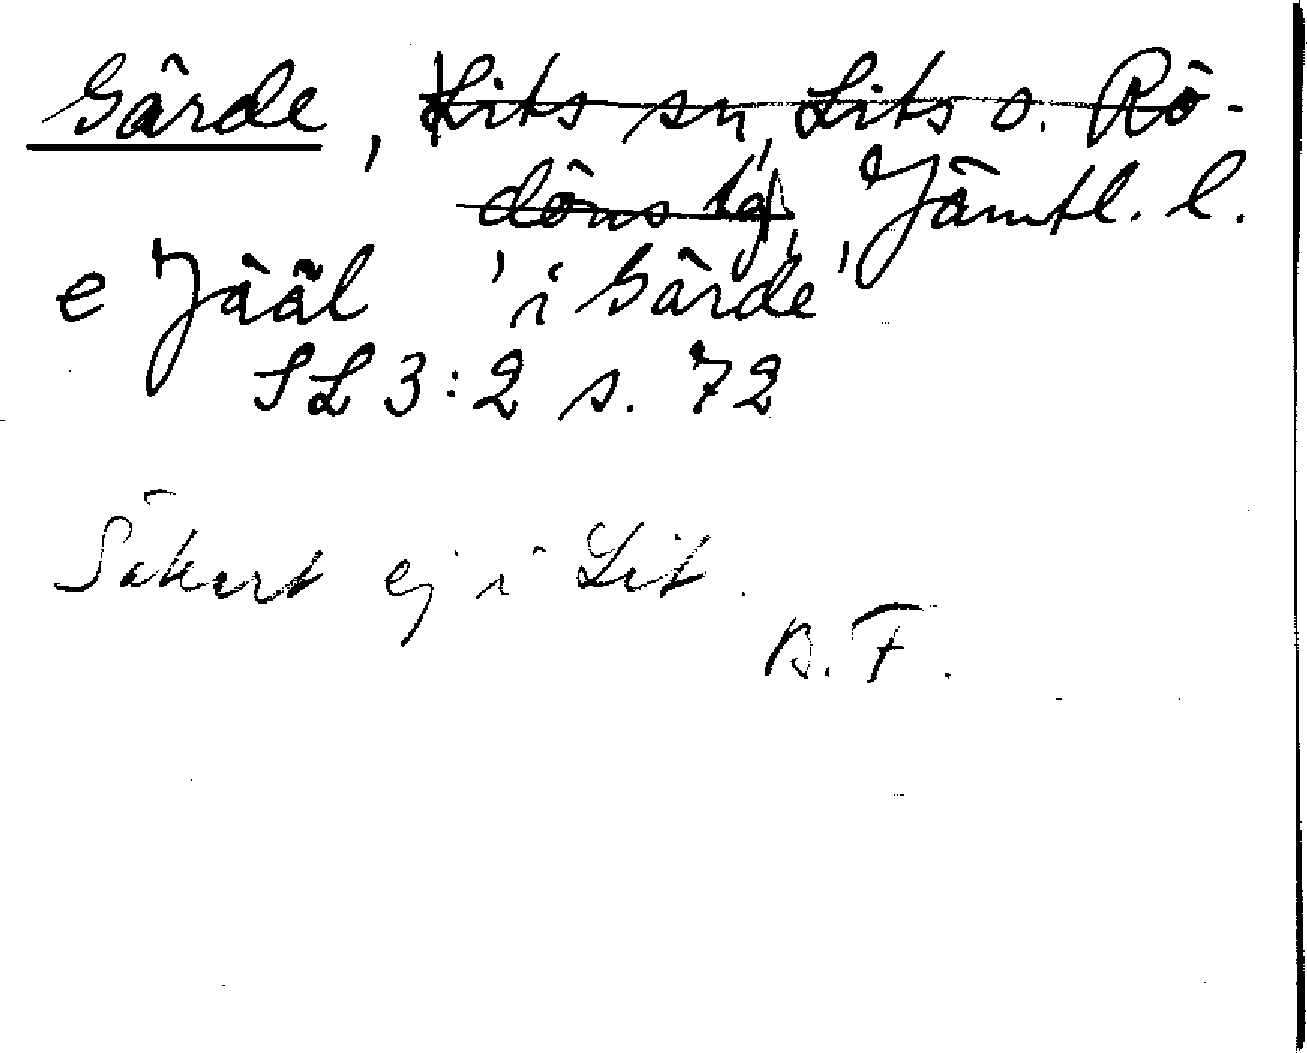 Gärde, Lits sn, Lits o. Rö-
döns tg, Jämtl. l.
e Jääl 'i Gärde'
SL 3:2 s. 72
Säkert ej i Lit.
B. F.